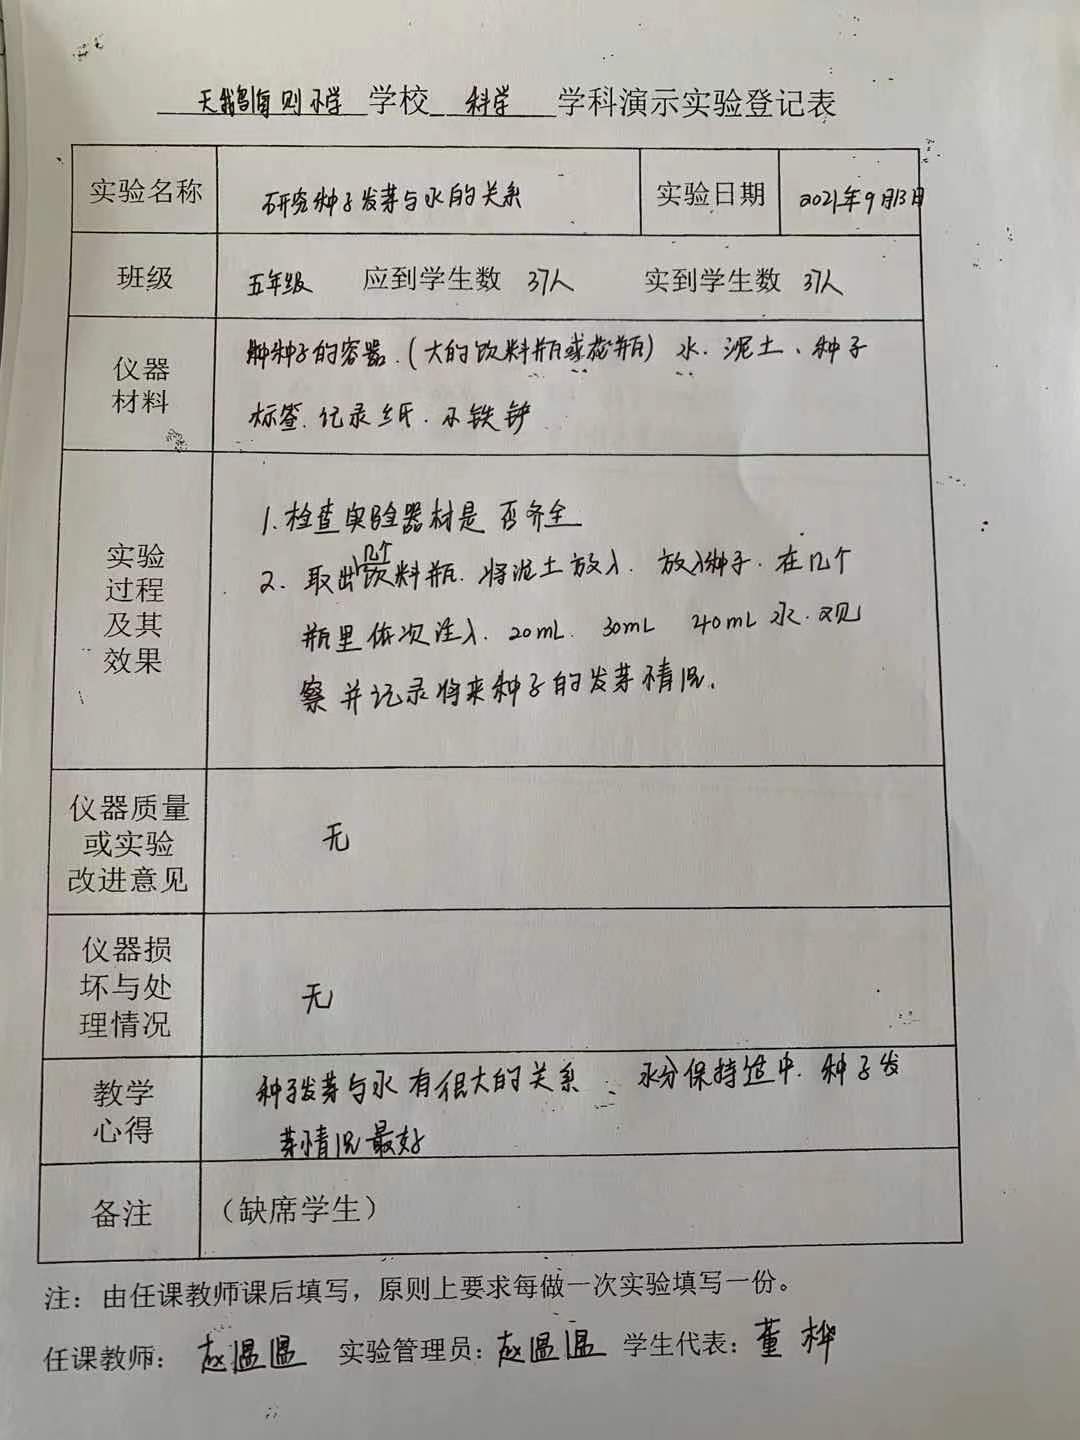 天鹅南则小学 学校 科学 学科演示实验登记表
实验名称 研究种子发芽与水的关系 实验日期 2021年9月13日
班级 五年级 应到学生数 37人 实到学生数 37人
仪器
材料
种种子的容器.(大的饮料瓶或花瓶) 水. 泥土、种子
标签. 记录纸. 小铁铲
实验
过程
及其
效果
1.检查实验器材是否齐全
2. 取出几个饮料瓶. 将泥土放入. 放入种子. 在几个
瓶里依次注入. 20mL. 30mL 40mL 水.观
察并记录将来种子的发芽情况.
仪器质量
或实验
改进意见
无
仪器损
坏与处
理情况
无
教学
心得
种子发芽与水有很大的关系 水分保持适中. 种子发
芽情况最好
备注 (缺席学生)
注：由任课教师课后填写，原则上要求每做一次实验填写一份。
任课教师：赵温温 实验管理员：赵温温 学生代表：董桦